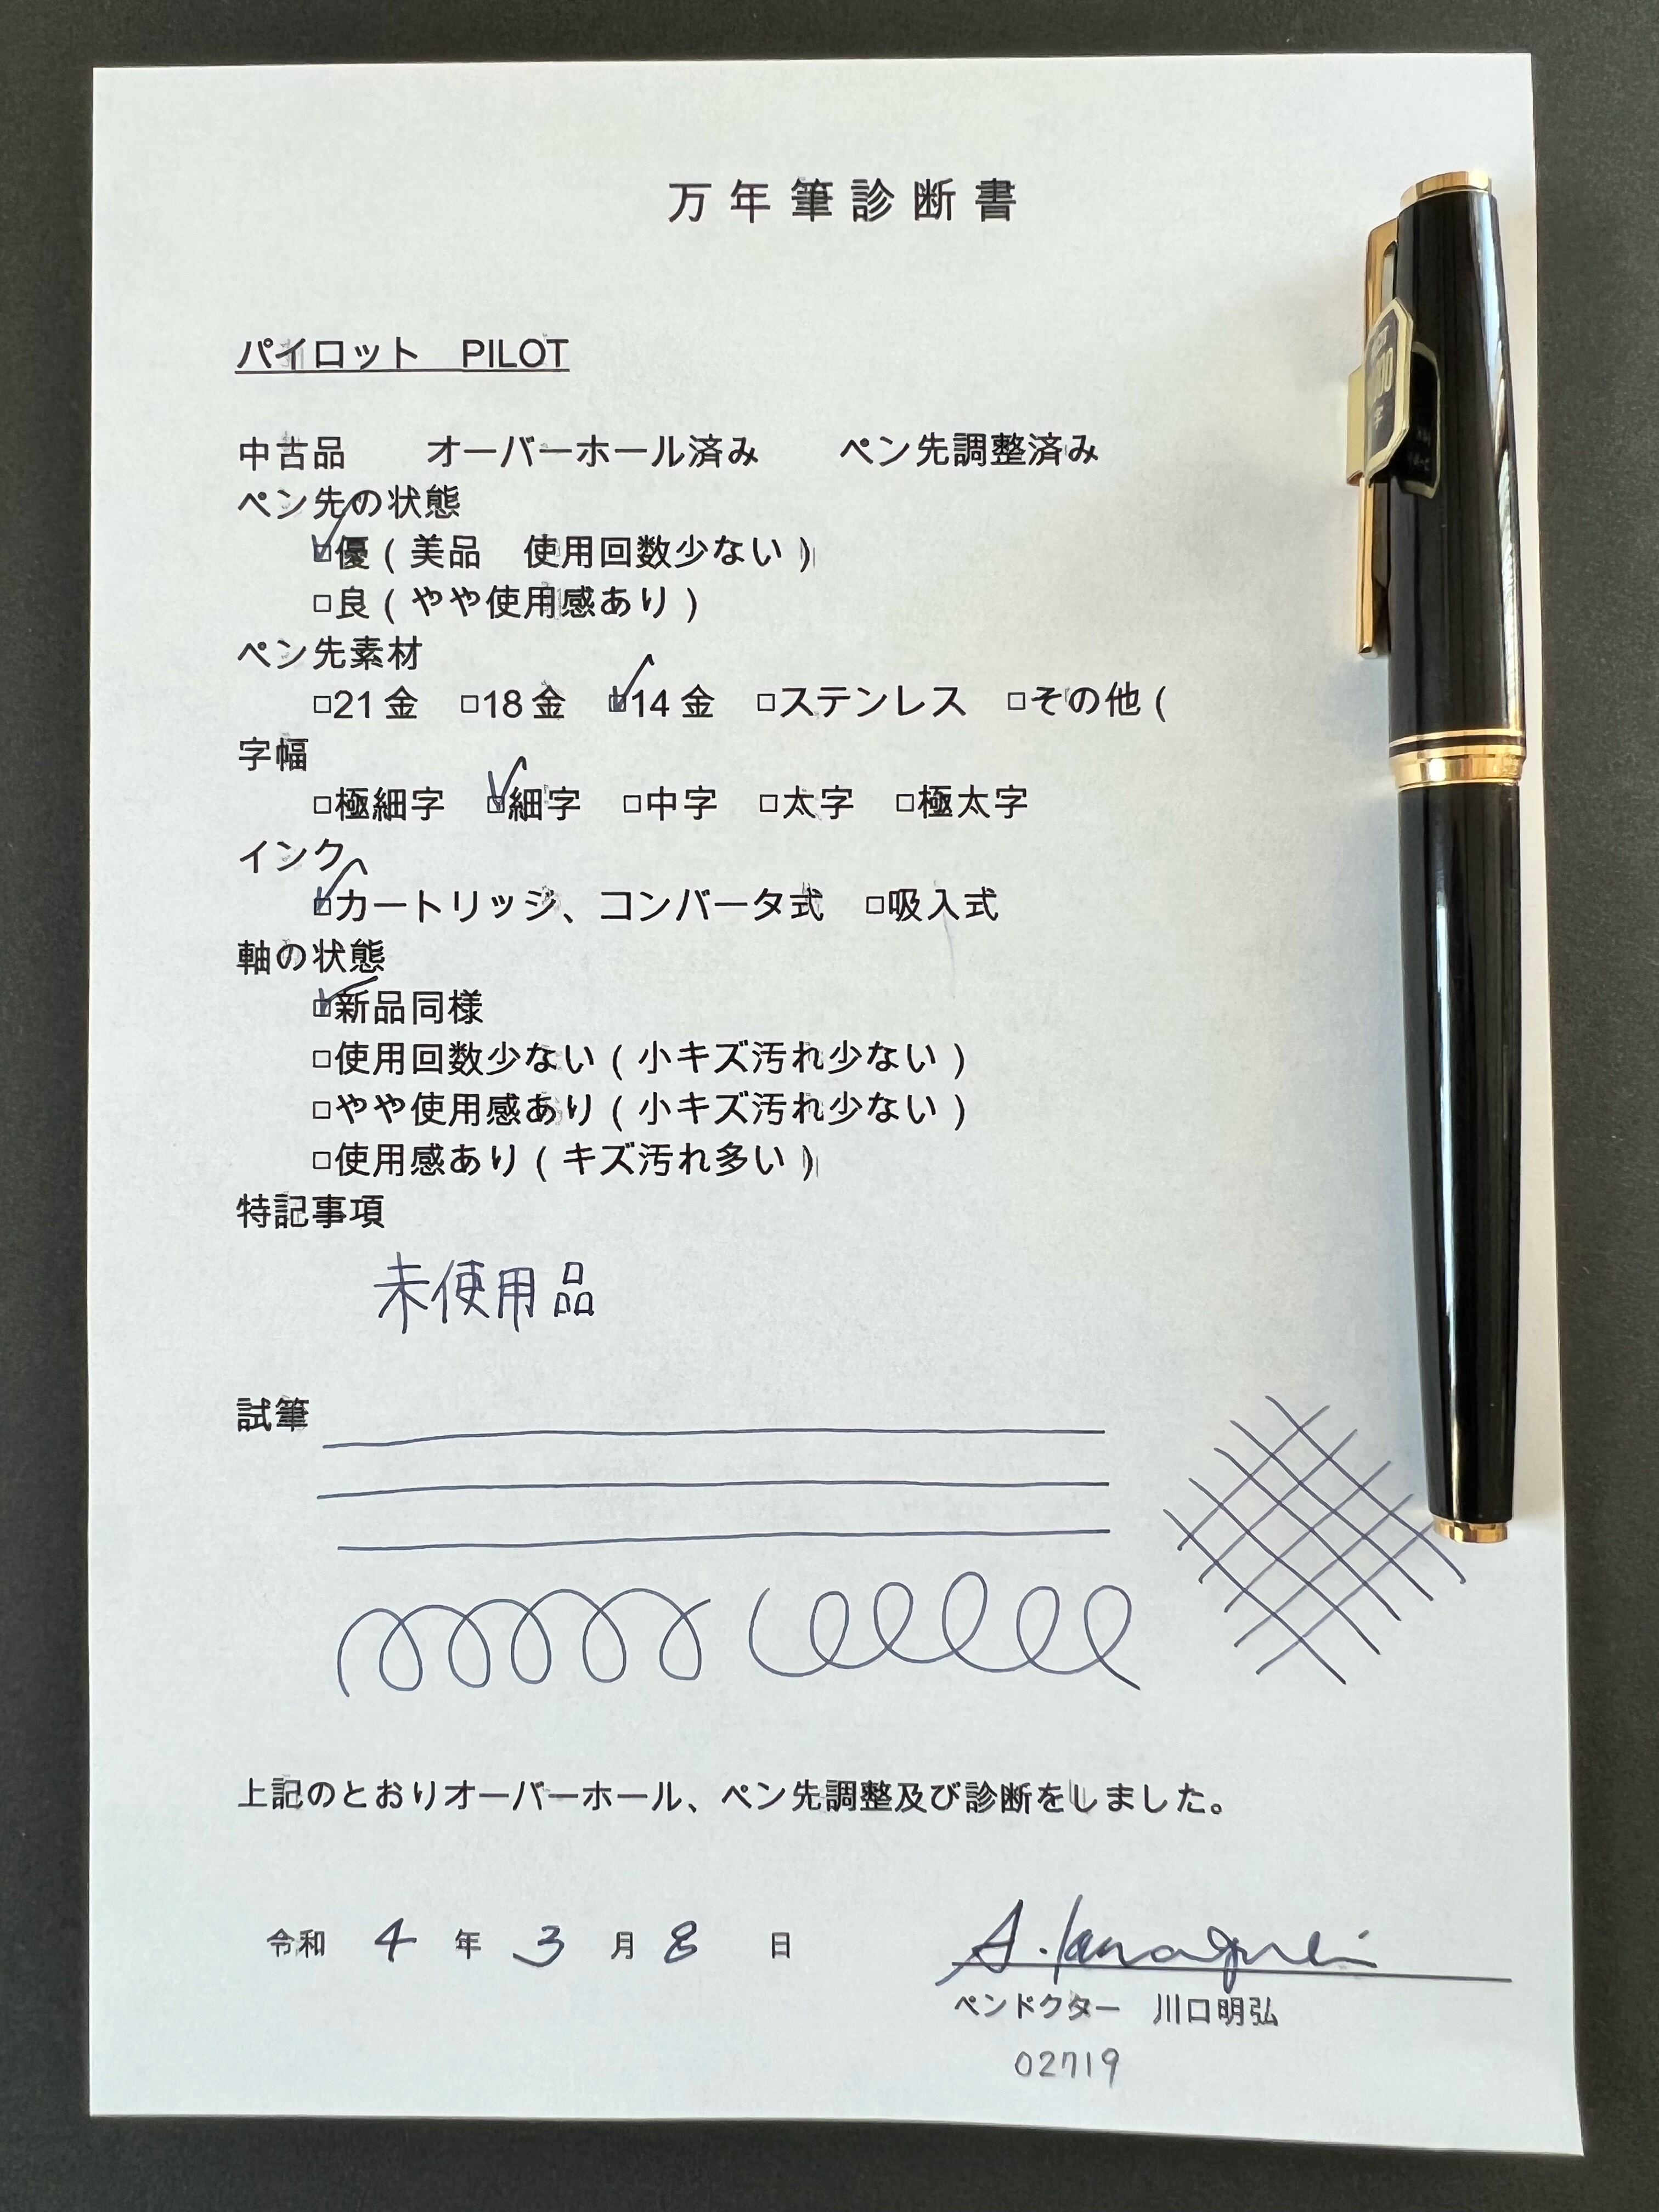 万年筆診断書
パイロット PILOT
中古品 オーバーホール済み ペン先調整済み
ペン先の状態
☑優(美品 使用回数少ない)
□良(やや使用感あり)
ペン先素材
□21金 □18金 ☑14金 □ステンレス □その他(
字幅
□極細字 ☑細字 □中字 □太字 □極太字
インク
☑カートリッジ、コンバータ式 □吸入式
軸の状態
☑新品同様
□使用回数少ない(小キズ汚れ少ない)
□やや使用感あり(小キズ汚れ少ない)
□使用感あり(キズ汚れ多い)
特記事項
未使用品
試筆
上記のとおりオーバーホール、ペン先調整及び診断をしました。
令和 4 年 3 月 8 日
A. Kawaguchi
ペンドクター 川口明弘
02719